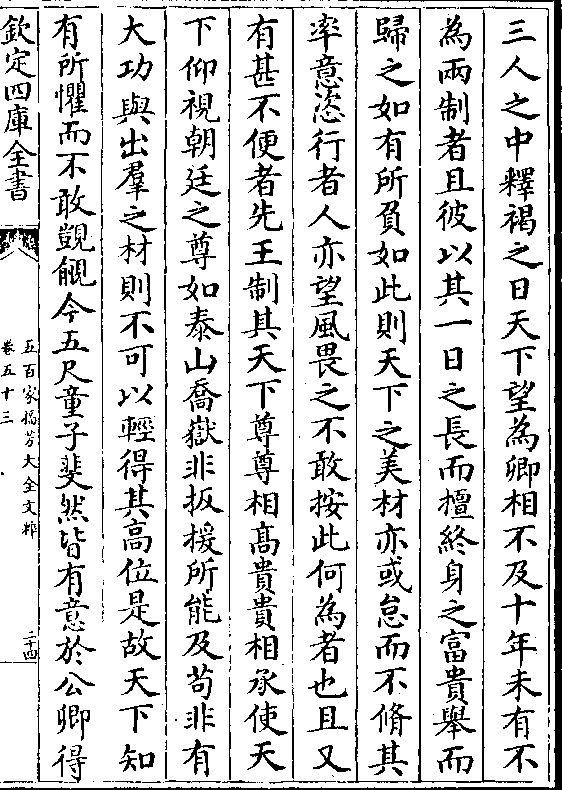 三人之中釋褐之日天下望為卿相不及十年未有不
為兩制者且彼以其一日之長而擅終身之富貴舉而
歸之如有所負如此則天下之美材亦或怠而不脩其
率意恣行者人亦望風畏之不敢按此何為者也且又
有甚不便者先王制其天下尊尊相髙貴貴相承使天
下仰視朝廷之尊如泰山喬嶽非扳援所能及苟非有
大功與出羣之材則不可以輕得其高位是故天下知
有所懼而不敢覬覦今五尺童子斐然皆有意於公卿得
欽定四庫全書
五百家播芳大全文粹
卷五十三
二十四